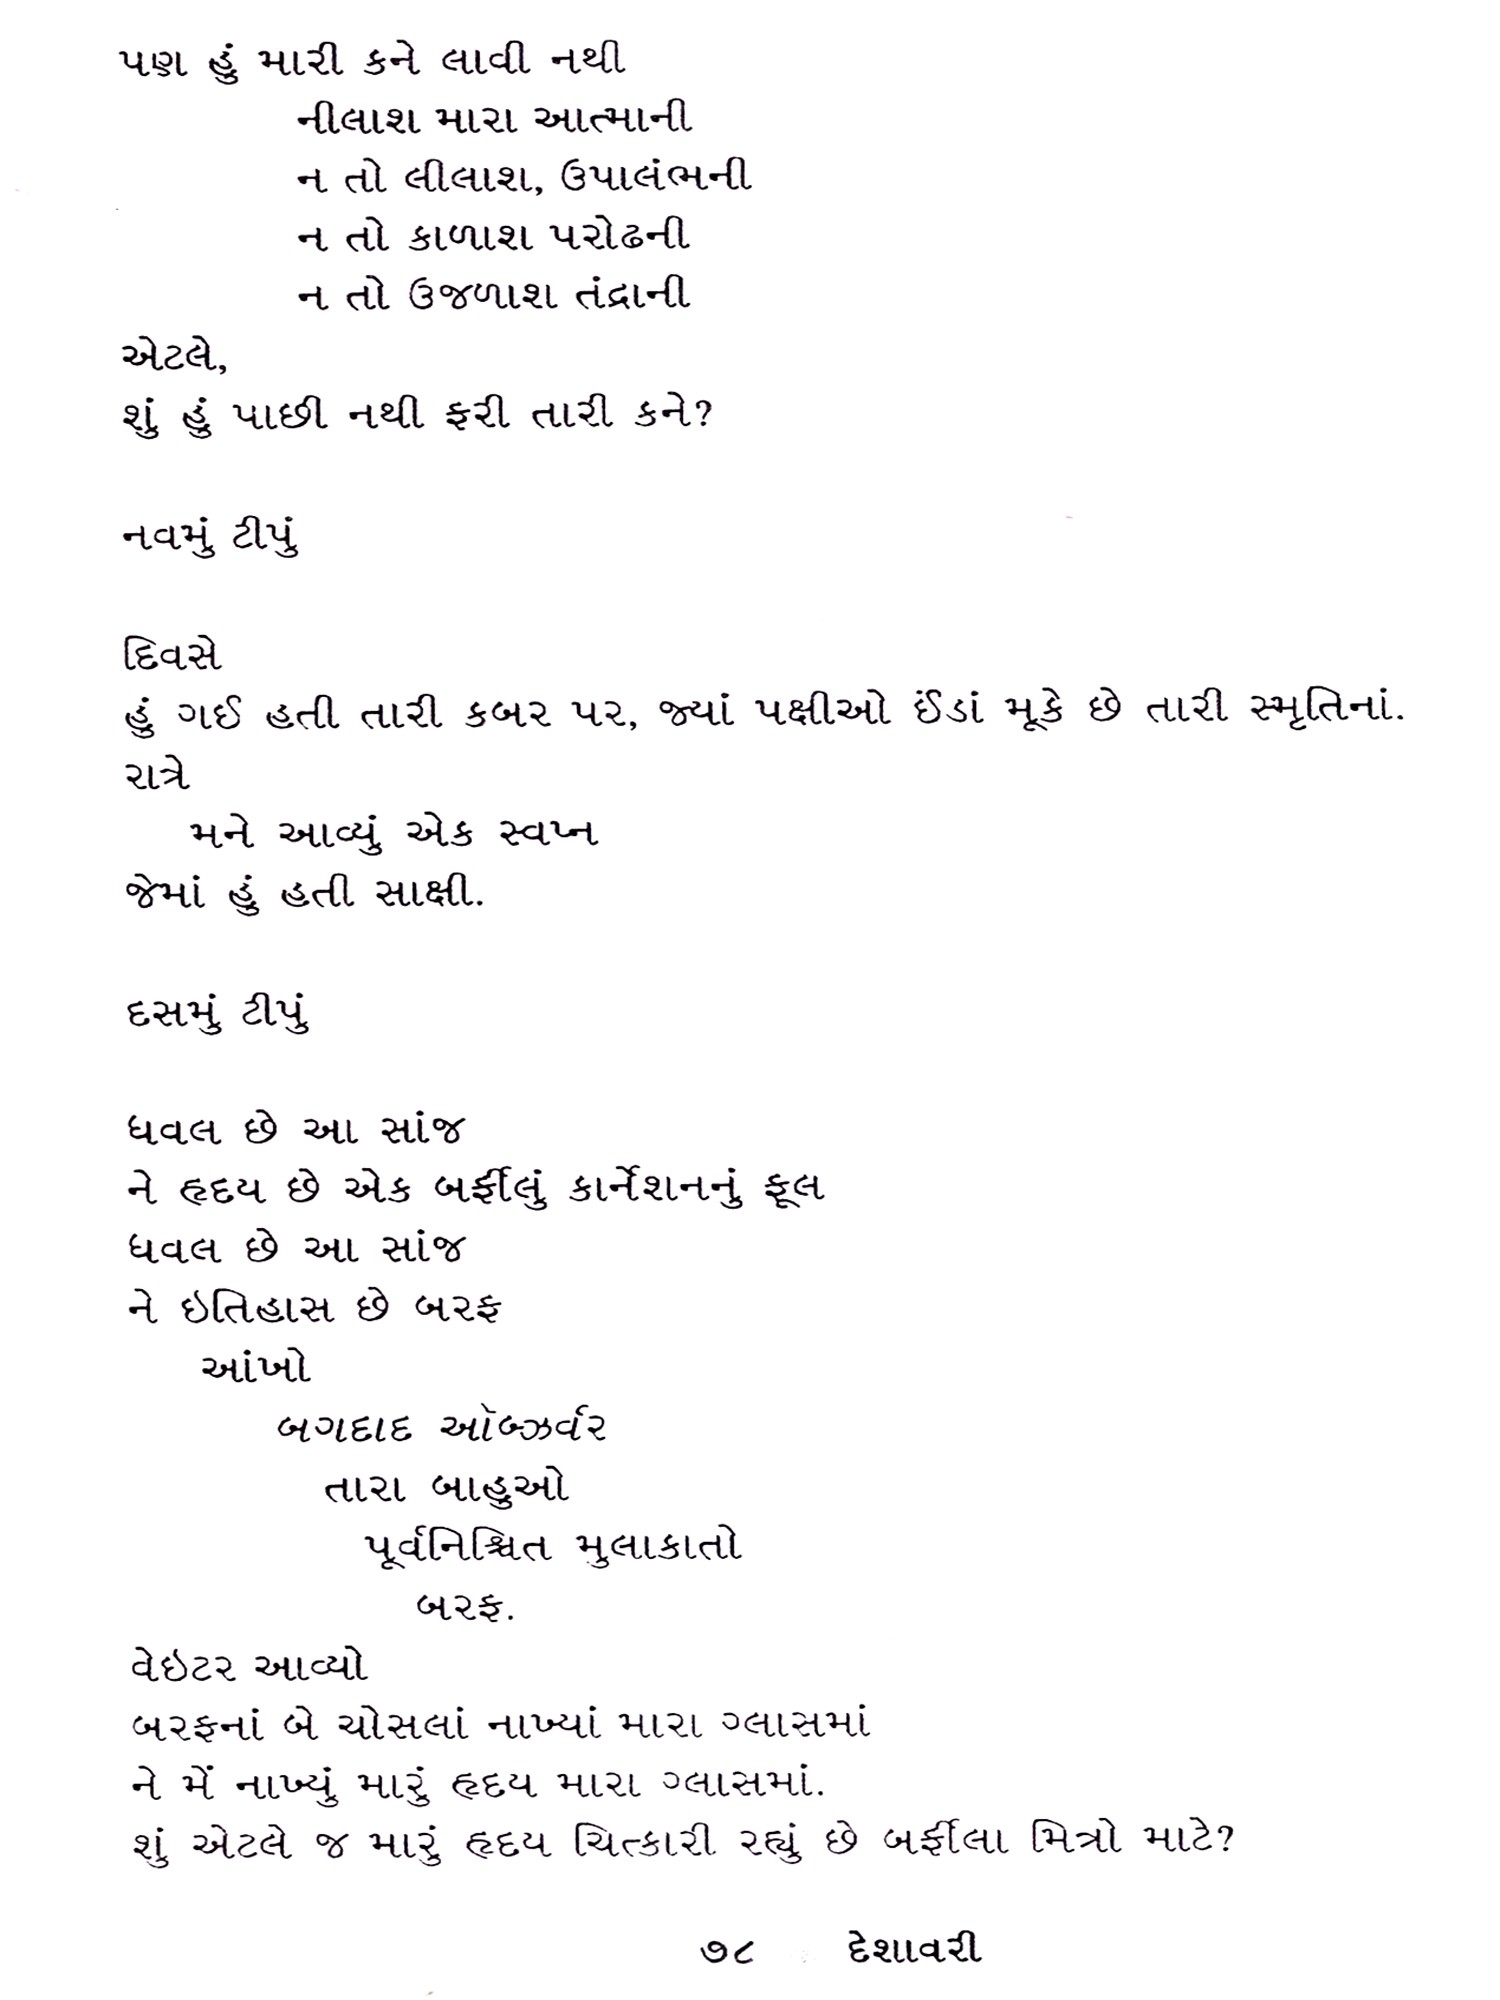 પણ હું મારી કને લાવી નથી
નીલાશ મારા આત્માની
ન તો લીલાશ, ઉપાલંભની
ન તો કાળાશ પરોઢની
ન તો ઉજળાશ તંદ્રાની
એટલે,
શું હું પાછી નથી ફરી તારી કને?
નવમું ટીપું
દિવસે
હું ગઈ હતી તારી કબર પર, જ્યાં પક્ષીઓ ઈંડાં મૂકે છે તારી સ્મૃતિનાં.
રાત્રે
મને આવ્યું એક સ્વપ્ન
જેમાં હું હતી સાક્ષી.
દસમું ટીપું
ધવલ છે આ સાંજ
ને હૃદય છે એક બર્ફીલું કાર્નેશનનું ફૂલ
ધવલ છે આ સાંજ
ને ઇતિહાસ છે બરફ
આંખો
બગદાદ ઑબ્ઝર્વર
તારા બાહુઓ
પૂર્વનિશ્ચિત મુલાકાતો
બરફ.
વેઇટર આવ્યો
બરફનાં બે ચોસલાં નાખ્યાં મારા ગ્લાસમાં
ને મેં નાખ્યું મારું હૃદય મારા ગ્લાસમાં.
શું એટલે જ મારું હૃદય ચિત્કારી રહ્યું છે બર્ફીલા મિત્રો માટે?
૭૮ દેશાવરી